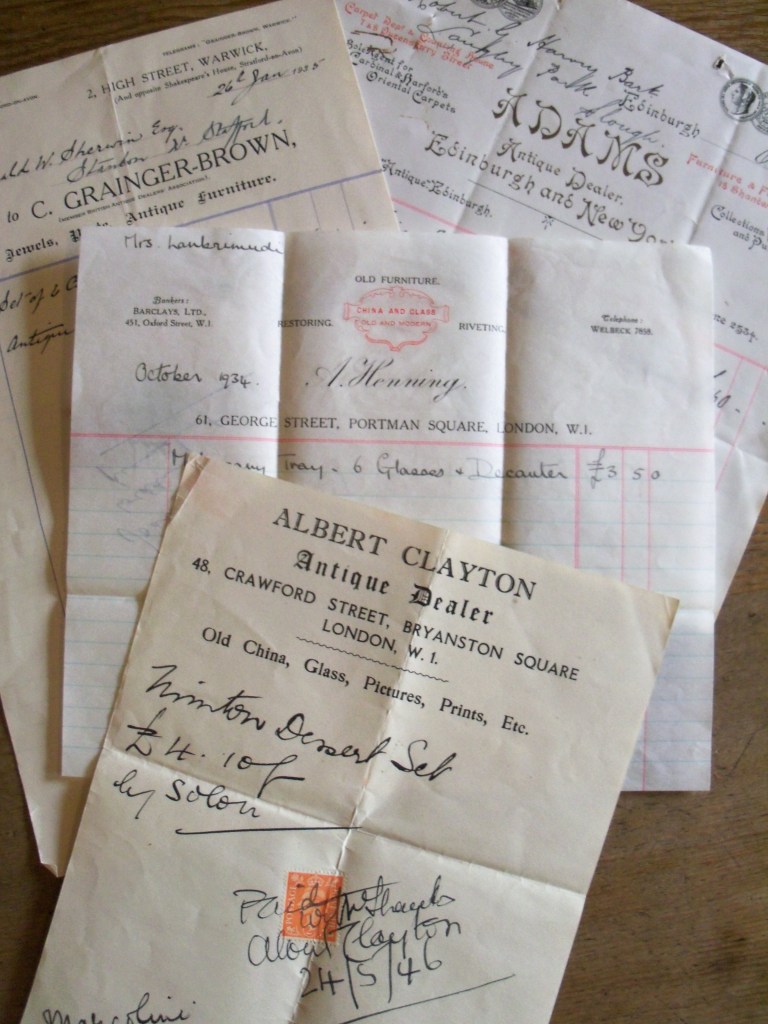 TELEGRAMS: "GRAINGER-BROWN, WARWICK."
2, HIGH STREET, WARWICK,
(And opposite Shakespeare's House, Stratford-on-Avon)
26th Jan 1935
W. Sherwin Esq.
to C. GRAINGER-BROWN,
Jewels, Antique Furniture.
Set of 6 C
Antique
Carpet Dept &
Queensberry Street
Sole Agent for
Cardinal & Harford's
Oriental Carpets
Harvey Bark
Langley Park
Slough.
Edinburgh
ADAMS
Antique Dealer.
Edinburgh and New Yor
Antique Edinburgh.
Furniture &
Collections
2534.
Mrs.
Bankers:
BARCLAYS, LTD.,
451, Oxford Street, W.1.
OLD FURNITURE.
RESTORING.
CHINA AND GLASS
OLD AND MODERN
RIVETING.
Telephone:
WELBECK 7858.
October 1934.
A. Henning.
61, GEORGE STREET, PORTMAN SQUARE, LONDON, W.1.
Tray - 6 Glasses & Decanter £3 5 0
ALBERT CLAYTON
Antique Dealer
48, CRAWFORD STREET, BRYANSTON SQUARE
LONDON, W.1.
Old China, Glass, Pictures, Prints, Etc.
Minton Dessert Set
£4.10/
by Solon
Paid
With Thanks
Albert Clayton
24/5/46
Marcolini